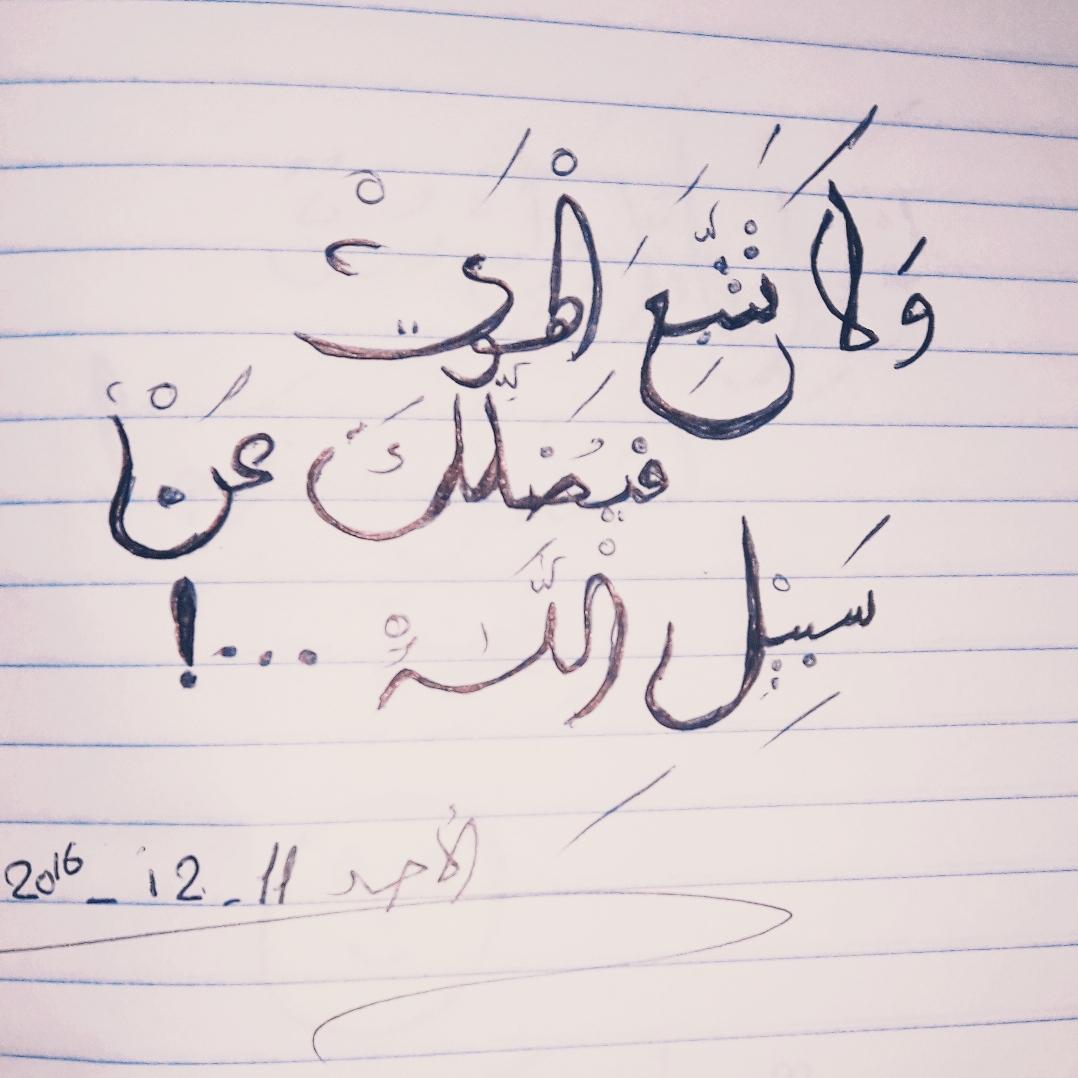 وَلَا تَتَّبِعَ الْهَوَىْ
فَيُضِلَّكَ عَنْ
سَبِيْلِ اللَّهْ ...!
الأحد 11_12_2016